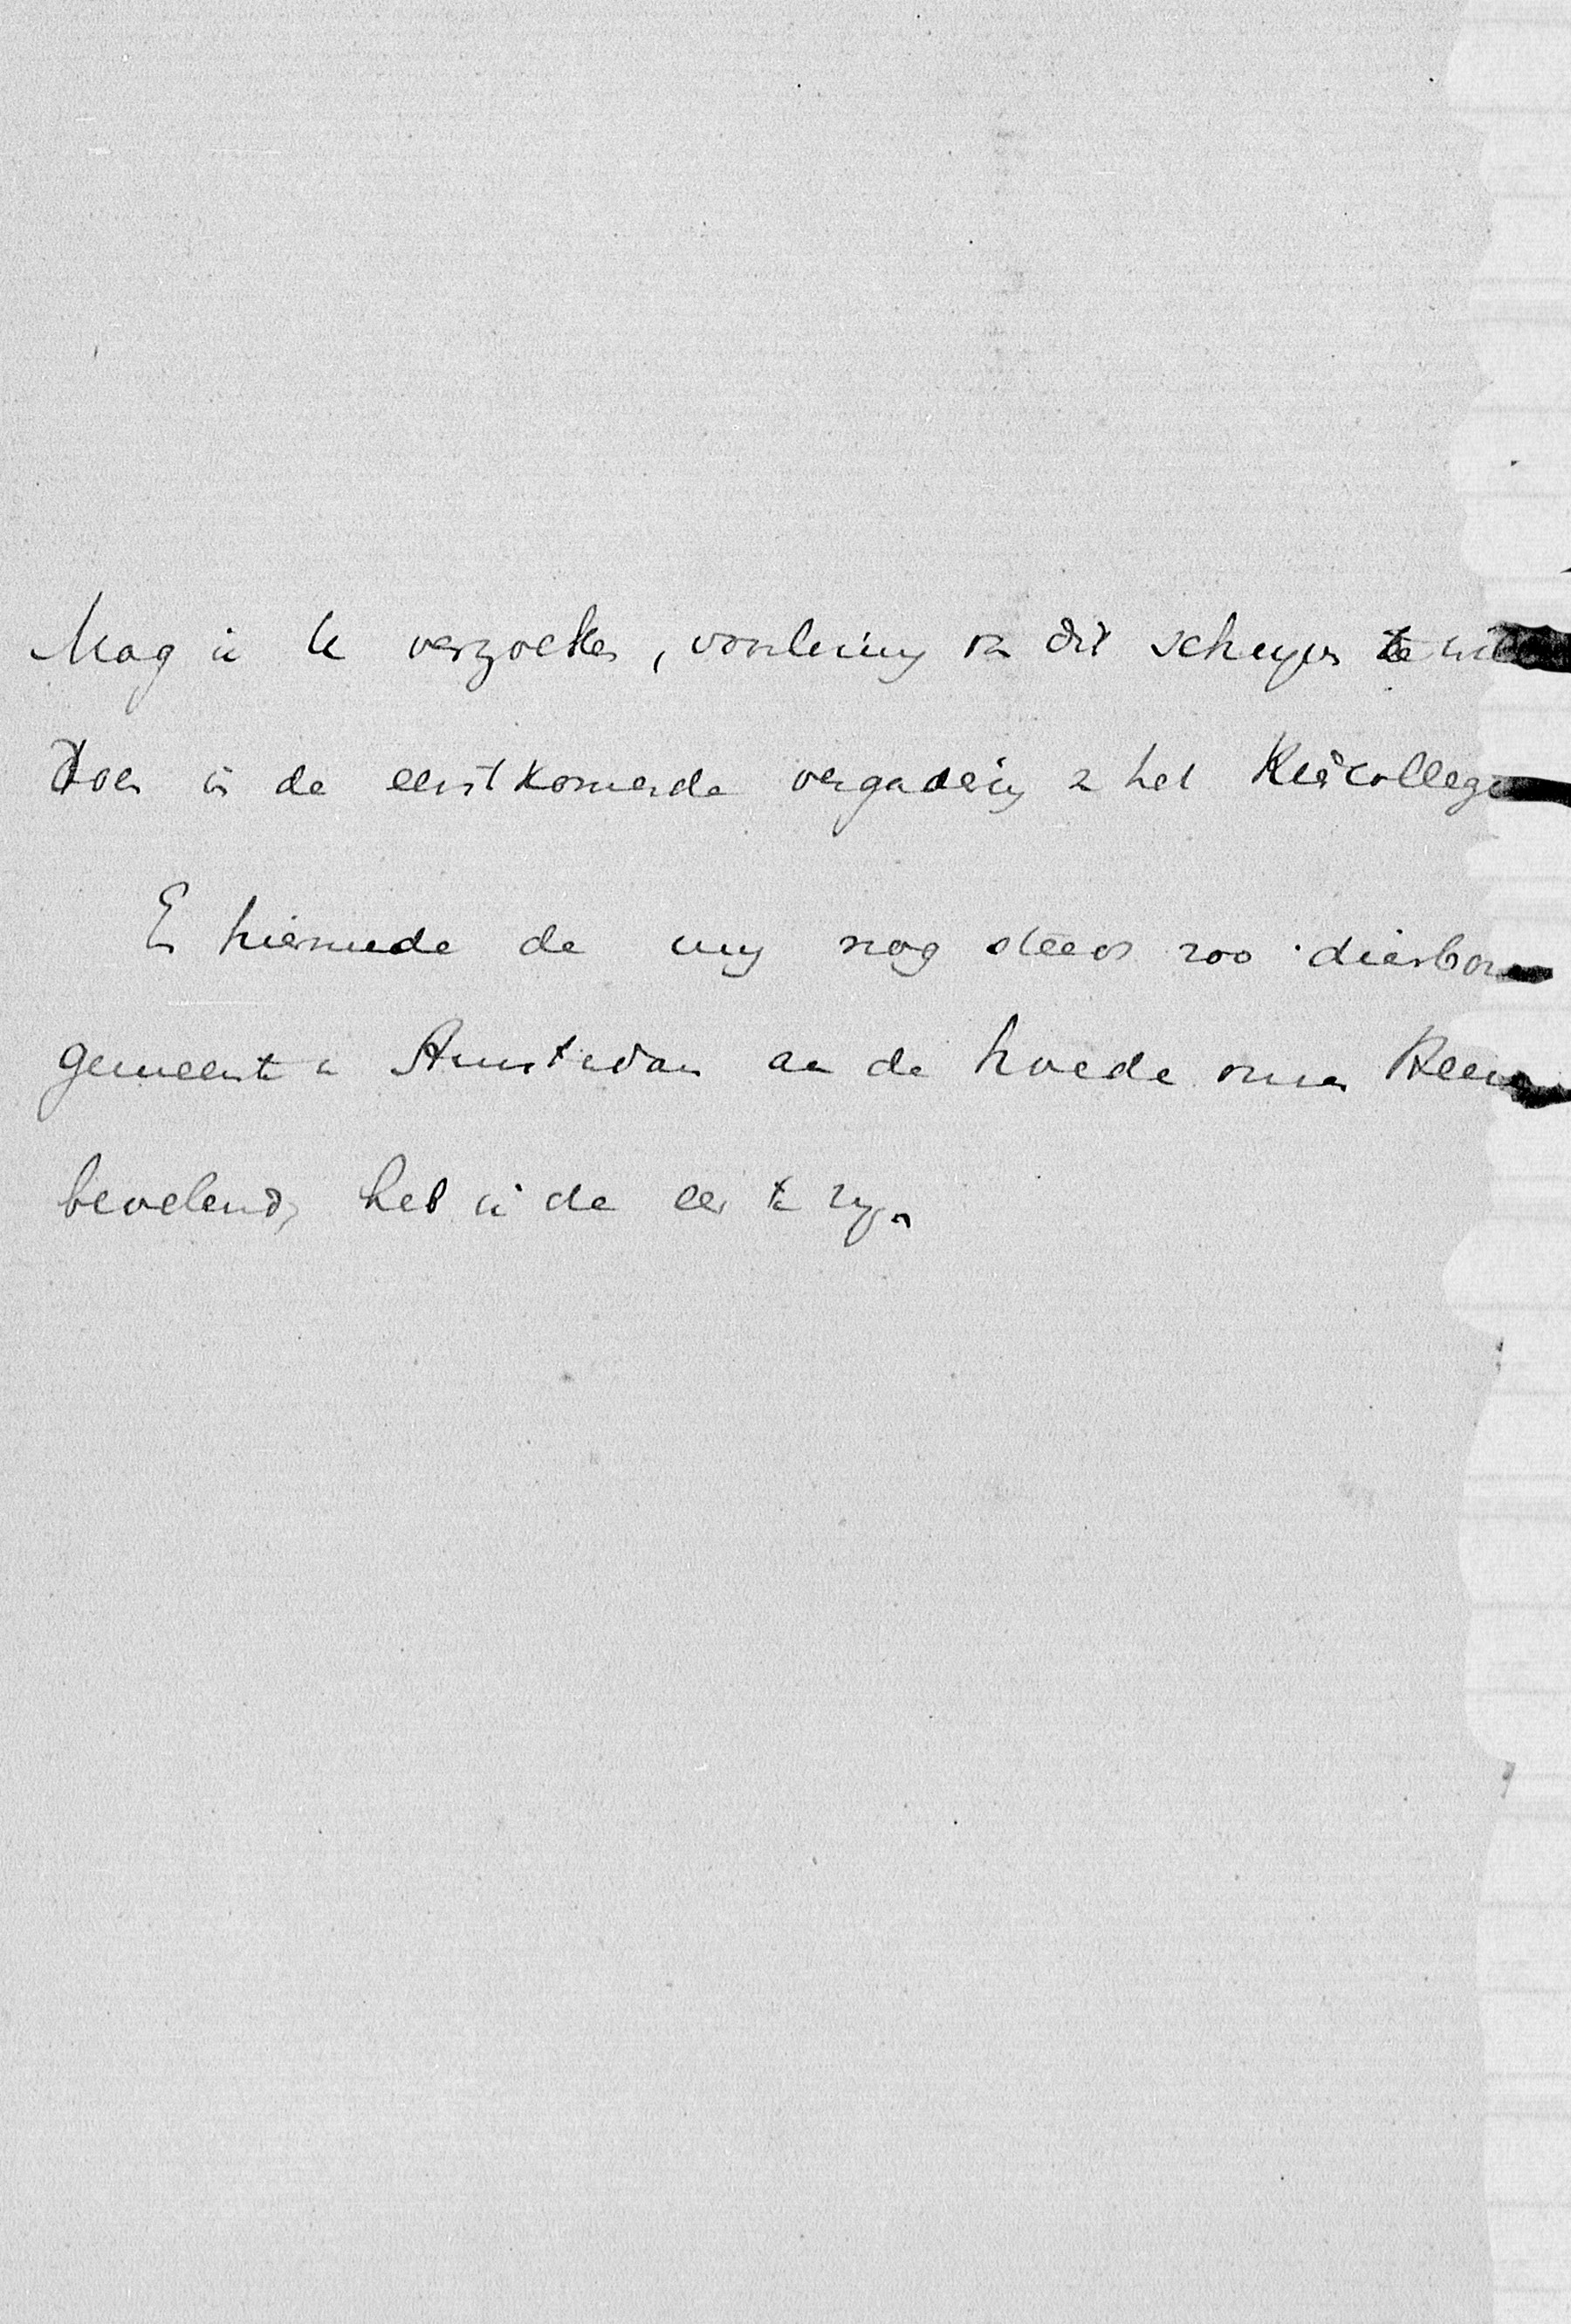 Mag ik U verzoeken, voorlezing van dit schrijven te willen
doen in de eerstkomende vergadering v. het Kiescollege
En hiermede de mij nog steeds zoo dierbare
gemeente in Amsterdam aan de hoede onzes Heeren
bevelend, heb ik de eer te zijn